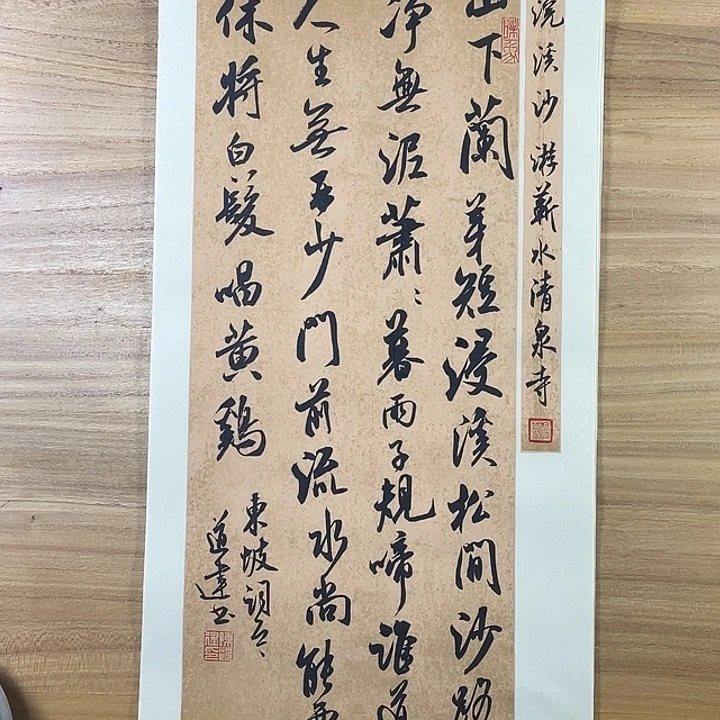 浣溪沙 游蘄水清泉寺
山下蘭芽短浸溪松間沙路
净無泥蕭〻暮雨子規啼誰道
人生無再少門前流水尚能西
休將白髮唱黄鷄
東坡詞
道達书